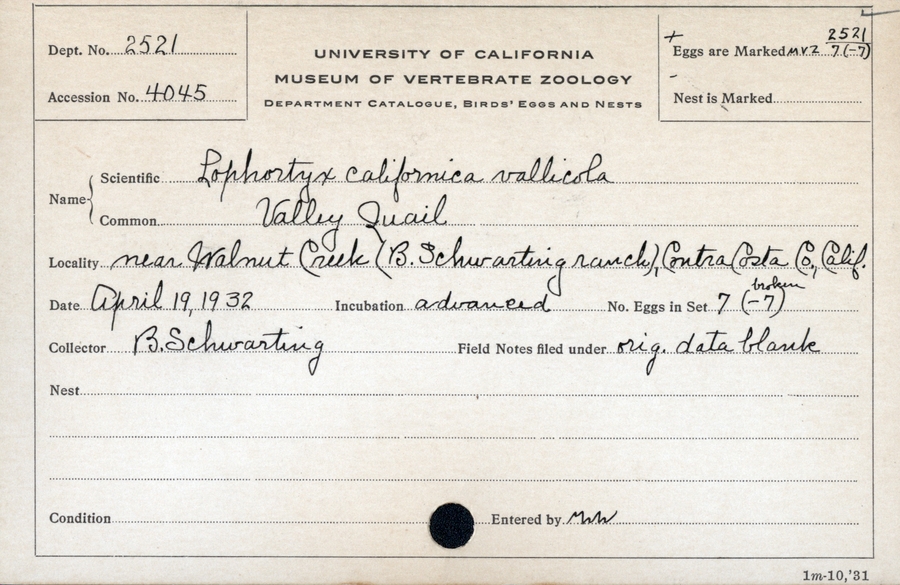 Dept. No. 2521
Accession No. 4045
UNIVERSITY OF CALIFORNIA
MUSEUM OF VERTEBRATE ZOOLOGY
DEPARTMENT CATALOGUE, BIRDS' EGGS AND NESTS
+ 2521
Eggs are Marked MVZ 7(-7)
-
Nest is Marked
Name Scientific Lophortyx californica vallicola
Common Valley Quail
Locality near Walnut Creek (B. Schwarting ranch), Contra Costa Co, Calif.
broken
Date April 19, 1932 Incubation advanced No. Eggs in Set 7 (-7)
Collector B. Schwarting Field Notes filed under orig. data blank
Nest
Condition Entered by
1m-10,'31